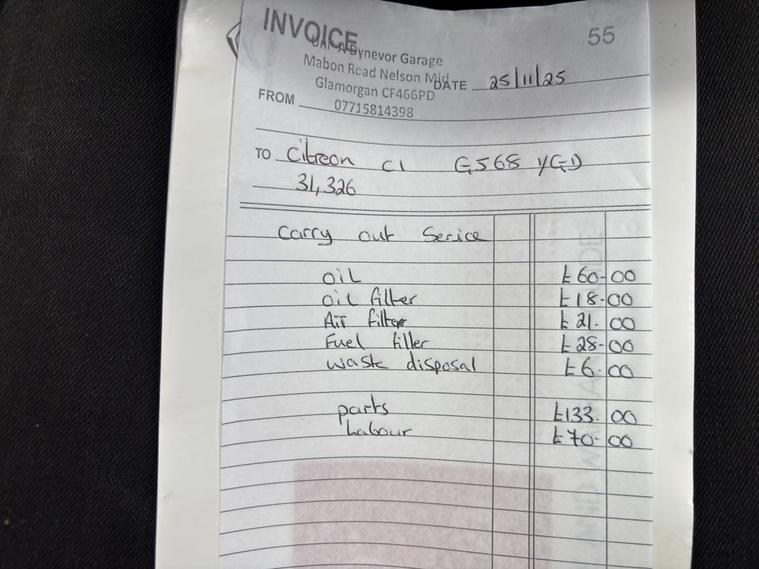 INVOICE 55
Dynevor Garage
Mabon Road Nelson Mid
Glamorgan CF466PD
DATE 25/11/25
FROM 07715814398
TO Citreon C1 GS68 YGD
31,326
Carry out Serice
oil £60.00
oil filter £18.00
Air filter £21.00
Fuel filler £28.00
waste disposal £6.00
parts £133.00
Labour £70.00